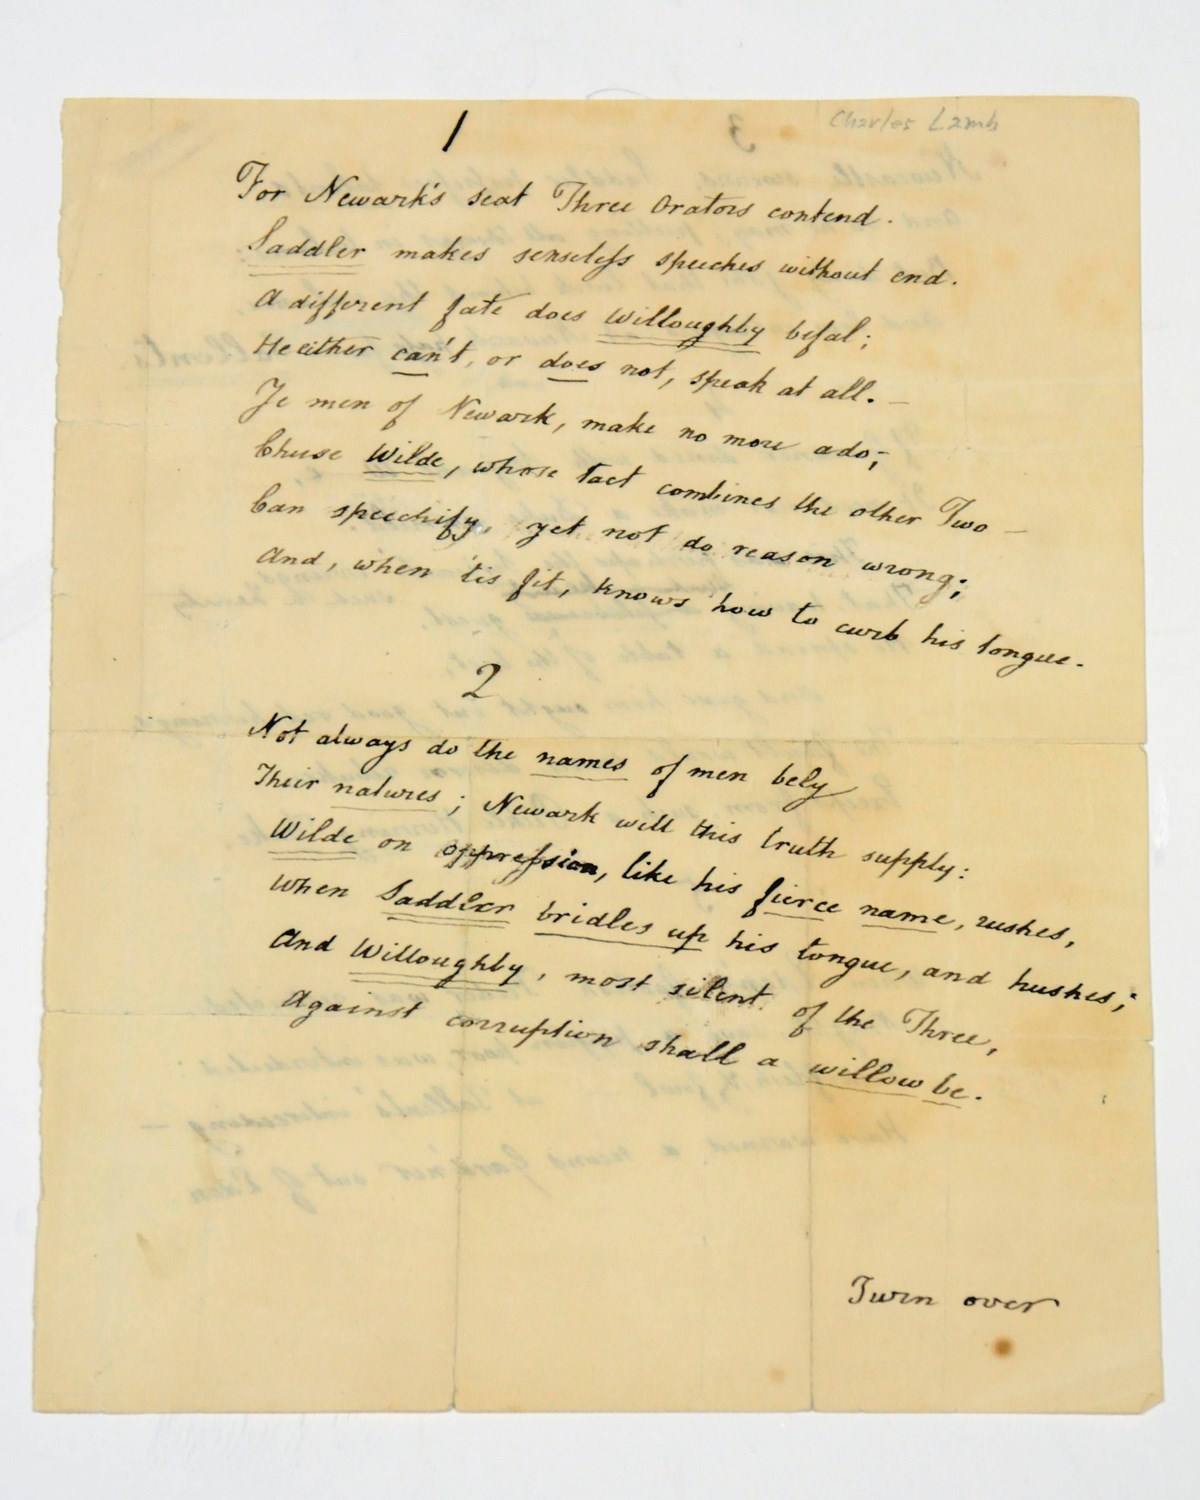 Charles Lamb
1
For Newark's seat Three Orators contend.
Saddler makes senseless speeches without end.
A different fate does Willoughby befal;
He either can't, or does not, speak at all. —
Ye men of Newark, make no more ado;
Chuse Wilde, whose tact combines the other Two —
Can speechify, yet not do reason wrong;
And, when 'tis fit, knows how to curb his tongue.
2
Not always do the names of men bely
Their natures; Newark will this truth supply:
Wilde on oppression, like his fierce name, rushes,
When Saddler bridles up his tongue, and hushes;
And Willoughby, most silent of the Three,
Against corruption shall a willow be.
Turn over